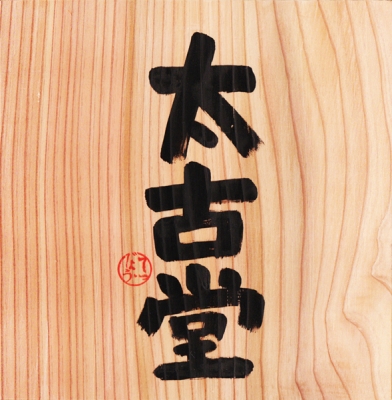 太古堂